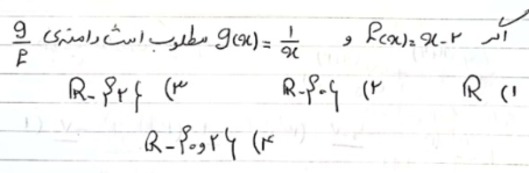 اگر f(x)=x-۲ و g(x)=1/x مطلوب است دامنه‌ی g/f
۱) R ۲) R-{۰} ۳) R-{۲}
۴) R-{۰و۲}